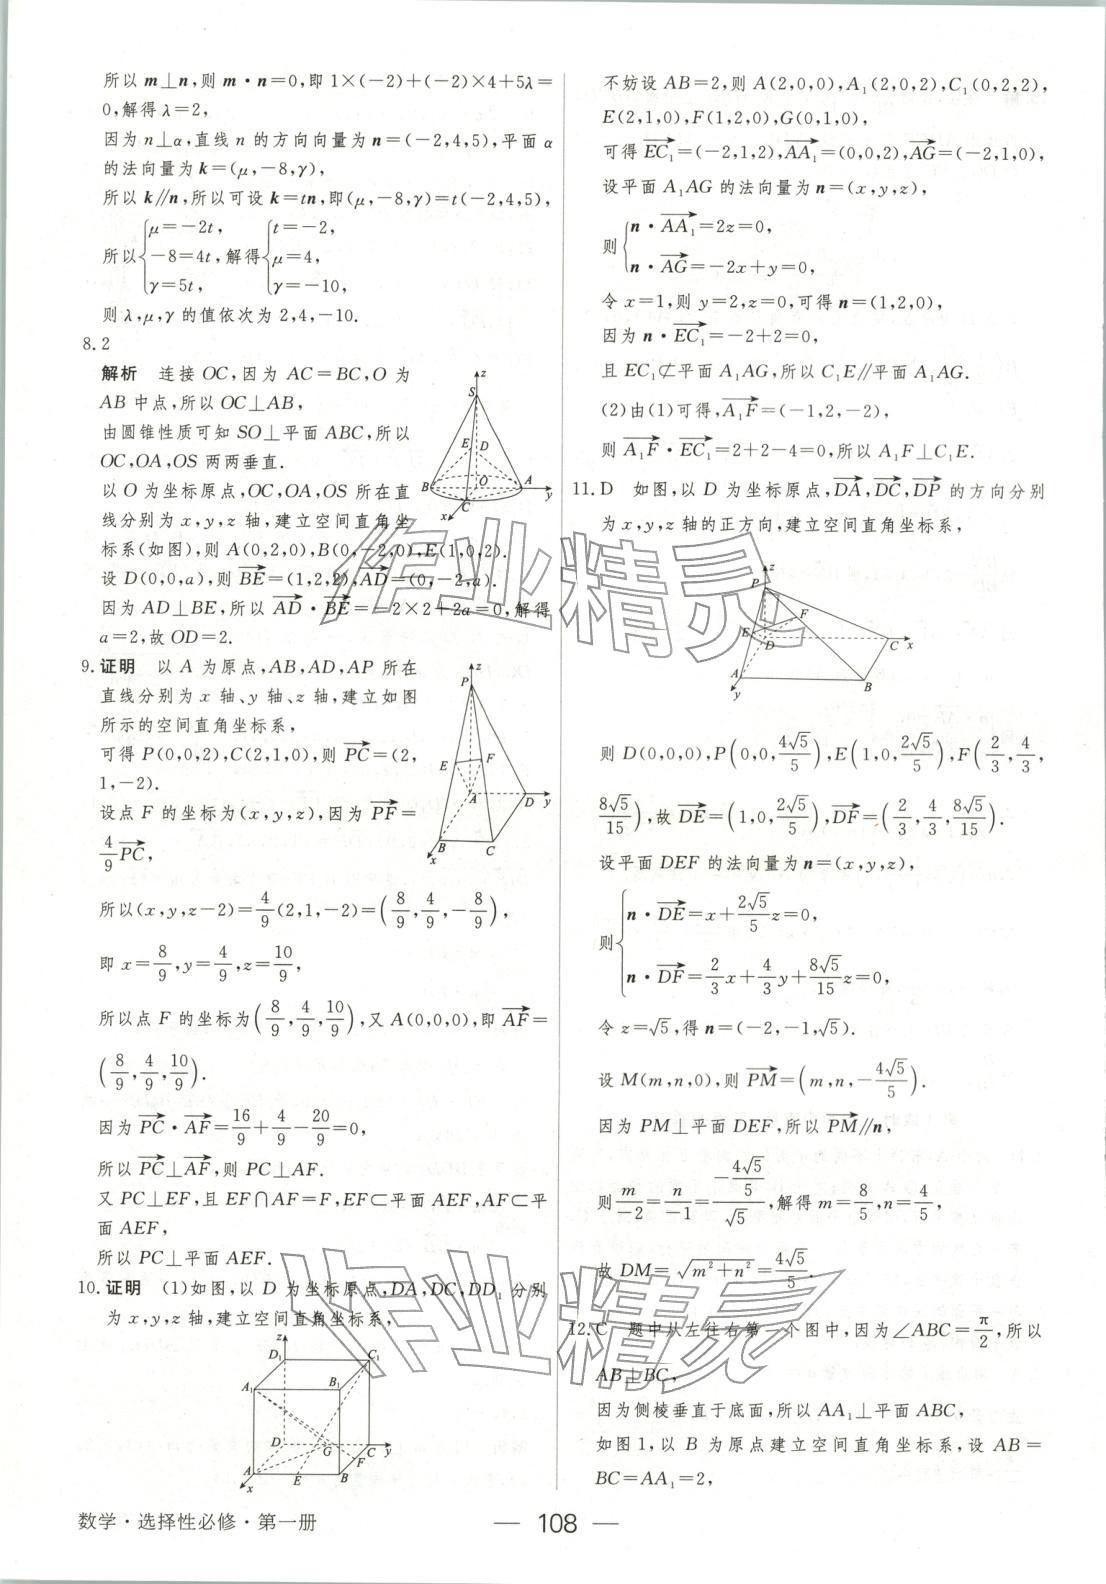 所以 m⊥n,则 m·n=0,即 1×(-2)+(-2)×4+5λ=
0,解得 λ=2,
因为 n⊥α,直线 n 的方向向量为 n=(-2,4,5),平面 α
的法向量为 k=(μ,-8,γ),
所以 k∥n,所以可设 k=tn,即(μ,-8,γ)=t(-2,4,5),
所以{μ=-2t, -8=4t, γ=5t, 解得{t=-2, μ=4, γ=-10,
则 λ,μ,γ 的值依次为 2,4,-10.
8.2
解析 连接 OC,因为 AC=BC,O 为
AB 中点,所以 OC⊥AB,
由圆锥性质可知 SO⊥平面 ABC,所以
OC,OA,OS 两两垂直.
以 O 为坐标原点,OC,OA,OS 所在直
线分别为 x,y,z 轴,建立空间直角坐
标系(如图),则 A(0,2,0),B(0,-2,0),E(1,0,2).
设 D(0,0,a),则 BE→=(1,2,2),AD→=(0,-2,a).
因为 AD⊥BE,所以 AD→·BE→=-2×2+2a=0,解得
a=2,故 OD=2.
z
S
E D
B O A y
C
x
9.证明 以 A 为原点,AB,AD,AP 所在
直线分别为 x 轴、y 轴、z 轴,建立如图
所示的空间直角坐标系,
可得 P(0,0,2),C(2,1,0),则 PC→=(2,
1,-2).
设点 F 的坐标为(x,y,z),因为 PF→=
4/9 PC→,
所以(x,y,z-2)=4/9(2,1,-2)=(8/9,4/9,-8/9),
即 x=8/9,y=4/9,z=10/9,
所以点 F 的坐标为(8/9,4/9,10/9),又 A(0,0,0),即 AF→=
(8/9,4/9,10/9).
因为 PC→·AF→=16/9+4/9-20/9=0,
所以 PC→⊥AF→,则 PC⊥AF.
又 PC⊥EF,且 EF∩AF=F,EF⊂平面 AEF,AF⊂平
面 AEF,
所以 PC⊥平面 AEF.
z
P
E F
A D y
B C
x
10.证明 (1)如图,以 D 为坐标原点,DA,DC,DD₁ 分别
为 x,y,z 轴,建立空间直角坐标系,
z
D₁ C₁
A₁ B₁
D G C y
F
A E B
x
不妨设 AB=2,则 A(2,0,0),A₁(2,0,2),C₁(0,2,2),
E(2,1,0),F(1,2,0),G(0,1,0),
可得 EC₁→=(-2,1,2),AA₁→=(0,0,2),AG→=(-2,1,0),
设平面 A₁AG 的法向量为 n=(x,y,z),
则{n·AA₁→=2z=0, n·AG→=-2x+y=0,
令 x=1,则 y=2,z=0,可得 n=(1,2,0),
因为 n·EC₁→=-2+2=0,
且 EC₁⊄平面 A₁AG,所以 C₁E∥平面 A₁AG.
(2)由(1)可得,A₁F→=(-1,2,-2),
则 A₁F→·EC₁→=2+2-4=0,所以 A₁F⊥C₁E.
11.D 如图,以 D 为坐标原点,DA→,DC→,DP→ 的方向分别
为 x,y,z 轴的正方向,建立空间直角坐标系,
z
P
F
E D C x
A B
y
则 D(0,0,0),P(0,0,4√5/5),E(1,0,2√5/5),F(2/3,4/3,
8√5/15),故 DE→=(1,0,2√5/5),DF→=(2/3,4/3,8√5/15).
设平面 DEF 的法向量为 n=(x,y,z),
则{n·DE→=x+2√5/5 z=0, n·DF→=2/3 x+4/3 y+8√5/15 z=0,
令 z=√5,得 n=(-2,-1,√5).
设 M(m,n,0),则 PM→=(m,n,-4√5/5).
因为 PM⊥平面 DEF,所以 PM→∥n,
则 m/-2=n/-1=(-4√5/5)/√5,解得 m=8/5,n=4/5,
故 DM=√(m²+n²)=4√5/5.
12.C 题中从左往右第一个图中,因为∠ABC=π/2,所以
AB⊥BC,
因为侧棱垂直于底面,所以 AA₁⊥平面 ABC,
如图1,以 B 为原点建立空间直角坐标系,设 AB=
BC=AA₁=2,
作业精灵
作业精灵
数学·选择性必修·第一册
— 108 —